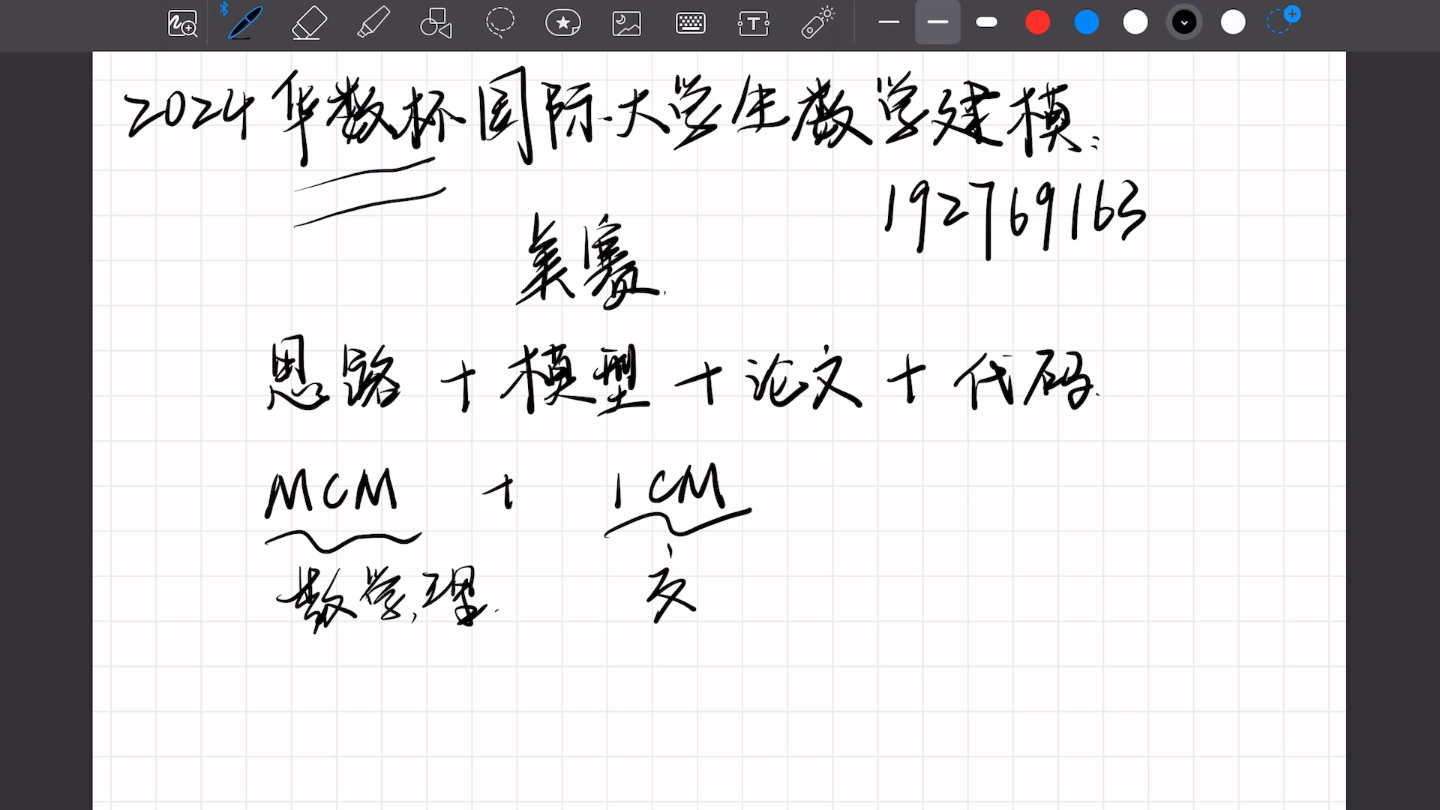 2024华数杯国际大学生数学建模:
192769163
美赛.
思路 + 模型 + 论文 + 代码.
MCM + ICM
数学,理. 文